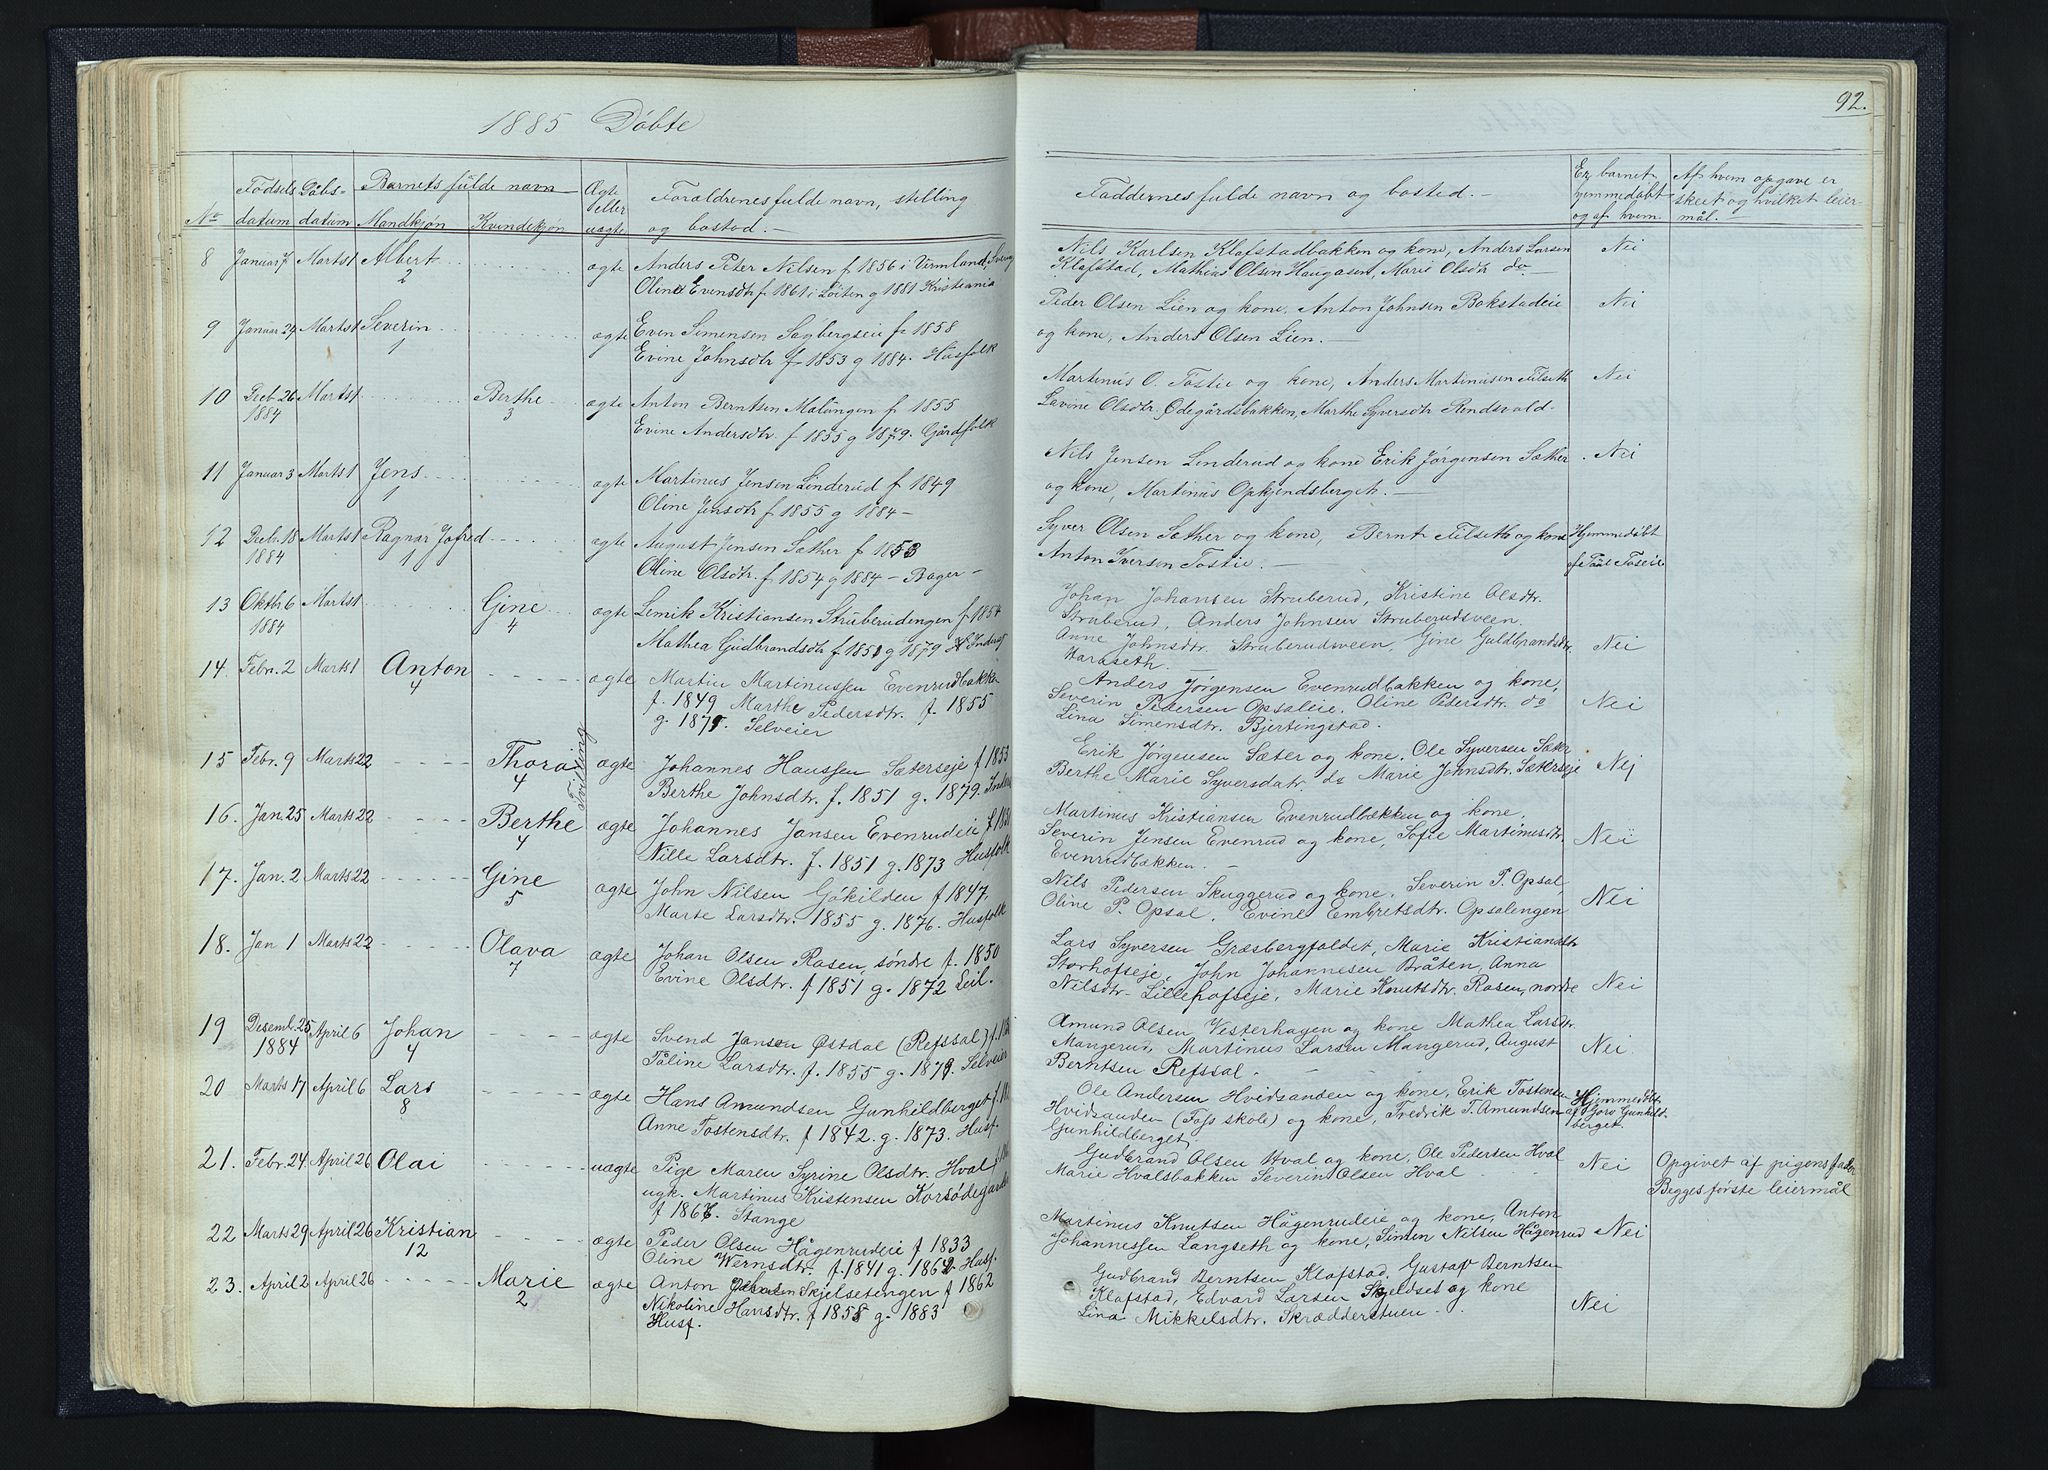 1885 Döbte
92.
Nr
Fødsels datum
Döbs- datum
Barnets fulde navn
Mandkjøn
Kvindekjøn
Ægte eller uægte
Forældrenes fulde navn, stilling og bosted. —
Faddernes fulde navn og bosted. —
Er barnet hjemmedøbt og af hvem
Af hvem opgave er skeet og hvilket leiermål. —
8 Januar 7 Marts 1 Albert ægte Anders Peter Nilsen f 1856 i Vermland,
2 Oline Evensdtr f 1861 i Löiten g 1881 Kristiania
Nils Karlsen Klafstadbakken og kone, Anders Larsen Nei
Klafstad, Mathias Olsen Haugasen, Marie Olsdtr do —
9 Januar 24 Marts 1 Severin ægte Even Simensen Sagbergseie f 1858
1 Evine Johnsdtr f 1853 g 1884. Husfolk
Peder Olsen Lien og kone, Anton Johnsen Bokstadeie Nei
og kone, Anders Olsen Lien. —
10 Decb. 26 Marts 1 Berthe ægte Anton Berntsen Malungen f 1855
1884 3 Evine Andersdtr. f 1855 g 1879. Gårdfolk
Martinus O. Tostie og kone, Anders Martinusen Filseth Nei
Lavine Olsdtr. Ødegårdsbakken, Marthe Syversdtr Rendsvold-
11 Januar 3 Marts 1 Jens ægte Martinus Jensen Linderud f 1849
1 Oline Jensdtr f 1855 g 1884 —
Nils Jensen Linderud og kone Erik Jørgensen Sæther Nei
og kone, Martinus Opkjendsberget. —
12 Decb. 18 Marts 1 Ragnar Jofred ægte August Jensen Sæther f 1853
1884 1 Oline Olsdtr. f 1854 g 1884 — Bager —
Syver Olsen Sæther og kone, Bernt Filseth og kone Hjemmedøbt
Anton Iversen Tostie. —
13 Oktbr 6 Marts 1 Gine ægte Lemik Kristiansen Struberudengen f 1854
1884 4 Mathea Gudbrandsdtr f 1851 g 1879
Johan Johansen Struberud, Kristine Olsdtr.
Struberud, Anders Johnsen Struberudsveen.
Anne Johnsdtr. Struberudsveen, Gine Guldbrandsdtr. Nei
Haraseth. —
14. Febr. 2 Marts 1 Anton ægte Martin Martinussen Evenrudbakken
4 f. 1849 Marthe Pedersdtr. f. 1855
g. 187. Selveier
Anders Jørgensen Evenrudbakken og kone,
Severin Pedersen Opsaleie, Oline Pedersdtr. do Nei
Lina Simensdtr. Bjertingstad.
15 Febr. 9 Marts 22 Thora ægte Johannes Hanssen Sæterseje f 1853
4 Tvilling Berthe Johnsdtr. f. 1851 g. 1879.
Erik Jørgensen Sæter og kone, Ole Syversen Sæter
Berthe Marie Syversdatr. do Marie Johnsdtr. Sæterseje Nej
16. Jan. 25 Marts 22 Berthe ægte Johannes Jansen Evenrudeie
4 Nille Larsdtr. f. 1851 g. 1873 Husfolk
Martinus Kristiansen Evenrudbækken og kone,
Severin Jensen Evenrud og kone, Sofie Martinusdtr. Nei
Evenrudbækken. —
17. Jan. 2 Marts 22 Gine ægte John Nilsen Gökilden f 1847,
5 Marte Larsdtr. 1855 g. 1876. Husfolk
Nils Pedersen Skuggerud og kone, Severin P. Opsal
Oline P. Opsal, Evine Embretsdtr. Opsalengen Nei
18. Jan 1 Marts 22 Olava ægte Johan Olsen Rasen, søndre f. 1850
7 Evine Olsdtr. f 1851 g. 1872 Leil.
Lars Syversen Græsbergfaldet, Marie Kristiansdtr
Storhofseje, John Johannesen Bråten, Anna
Nilsdtr. Lillehofseje, Marie Knutsdtr. Rasen, nordre Nei
19 Desemb. 25 April 6 Johan ægte Svend Jansen Østdal (Refssal)
1884 4 Påline Larsdtr. f. 1855 g. 1879. Selveier
Amund Olsen Vesterhagen og kone Mathea Larsdtr.
Mangerud, Martinus Larsen Mangerud, August Nei
Berntsen Refssal.
20 Marts 17 April 6 Lars ægte Hans Amundsen Gunhildberget
8 Anne Tostensdtr. f 1842. g. 1873. Husf.
Ole Andersen Hvidsanden og kone, Erik Tostensen Hjemmedöbt
Hvidsanden (Fass skole) og kone, Fredrik T. Amundsen af Goro Gunhildberget.
Gunhildberget,
21. Febr. 24 April 26 Olai uægte Pige Maren Syrine Olsdtr. Hval
ugk. Martinus Kristensen Korsødegården
f 186. Stange
Gudbrand Olsen Hval og kone, Ole Pedersen Hval
Marie Hvalsbakken Severin Olsen Hval Nei
Opgivet af pigens fader
Begges første leiermål
22 Marts 29 April 26 Kristian ægte Peder Olsen Hågenrudeie f 1833
12 Oline Wernsdtr. f. 1841 g. 1862 Husf.
Martinus Knutsen Hågenrudeie og kone, Anton
Johannessen Langseth og kone, Simen Nilsen Hågenrud Nei
23. April 2 April 26 Marie ægte Anton Skjelsetengen f 1862
2 Nikoline Hansdtr. f 1858 g. 1883
Husf.
Gudbrand Berntsen Klafstad, Gustav Berntsen
Klafstad, Edvard Larsen Skjeldset og kone
Lina Mikkelsdtr. Skrædderstuen. Nei